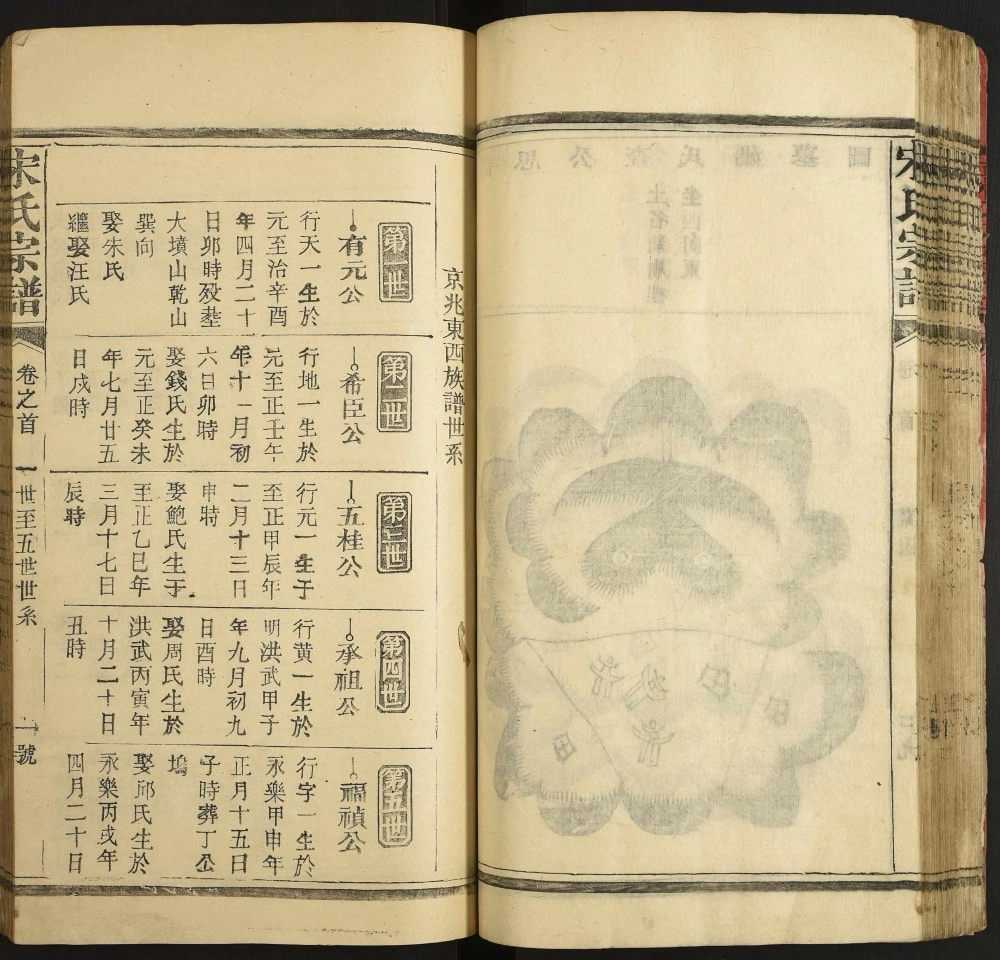 宋氏宗譜
京兆東西族譜世系
第一世
有元公
行天一生於
元至治辛酉
年四月二十
日卯時歿塟
大墳山乾山
巽向
娶朱氏
繼娶汪氏
第二世
希臣公
行地一生於
元至正壬午
年十一月初
六日卯時
娶錢氏生於
元至正癸未
年七月廿五
日戌時
第三世
五桂公
行元一生于
至正甲辰年
二月十三日
申時
娶鮑氏生于
至正乙巳年
三月十七日
辰時
第四世
承祖公
行黄一生於
明洪武甲子
年九月初九
日酉時
娶周氏生於
洪武丙寅年
十月二十日
丑時
第五世
福禎公
行字一生於
永樂甲申年
正月十五日
子時葬丁公
塢
娶邱氏生於
永樂丙戌年
四月二十日
宋氏宗譜
卷之首
一世至五世世系
一號